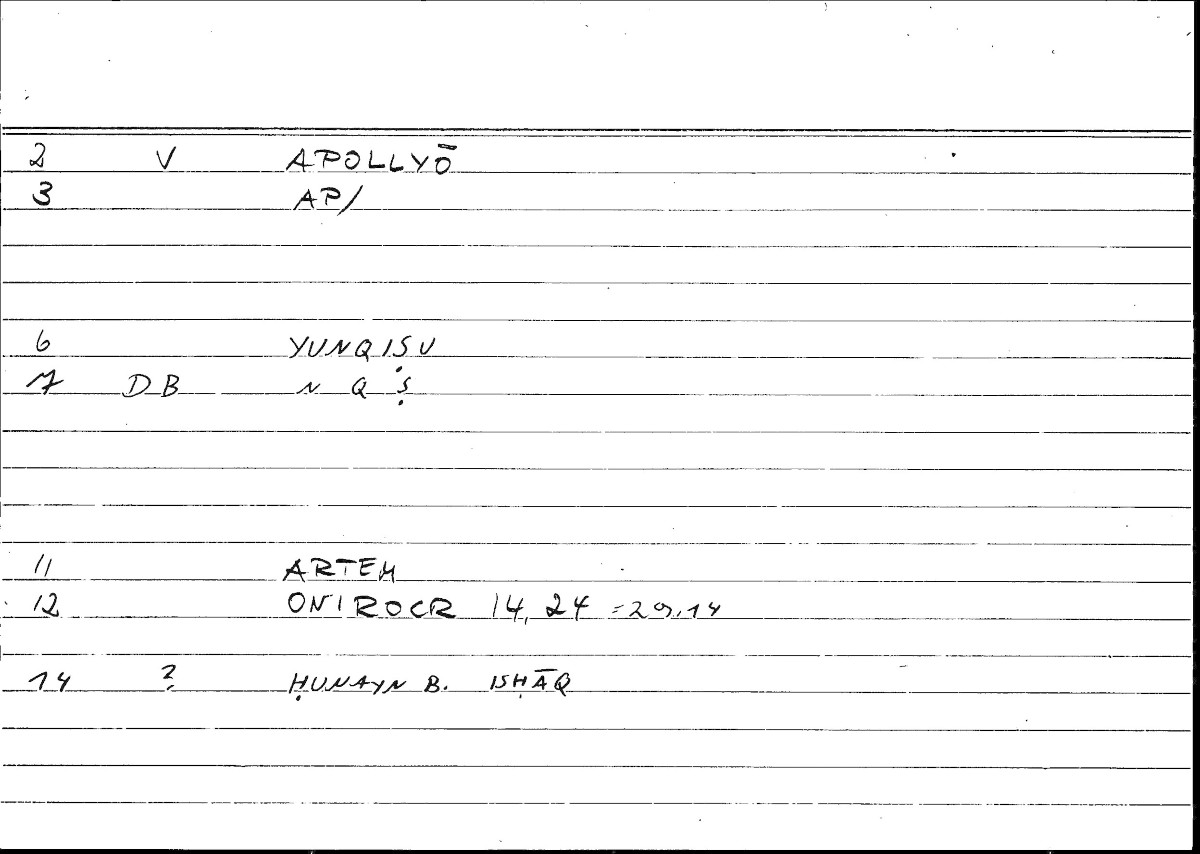 2 V APOLLYŌ
3 AP/
6 YUNQIṢU
7 DB N Q Ṣ
11 ARTEM
12 ONIROCR 14,24 = 29.14
14 ? ḤUNAYN B. ISḤĀQ